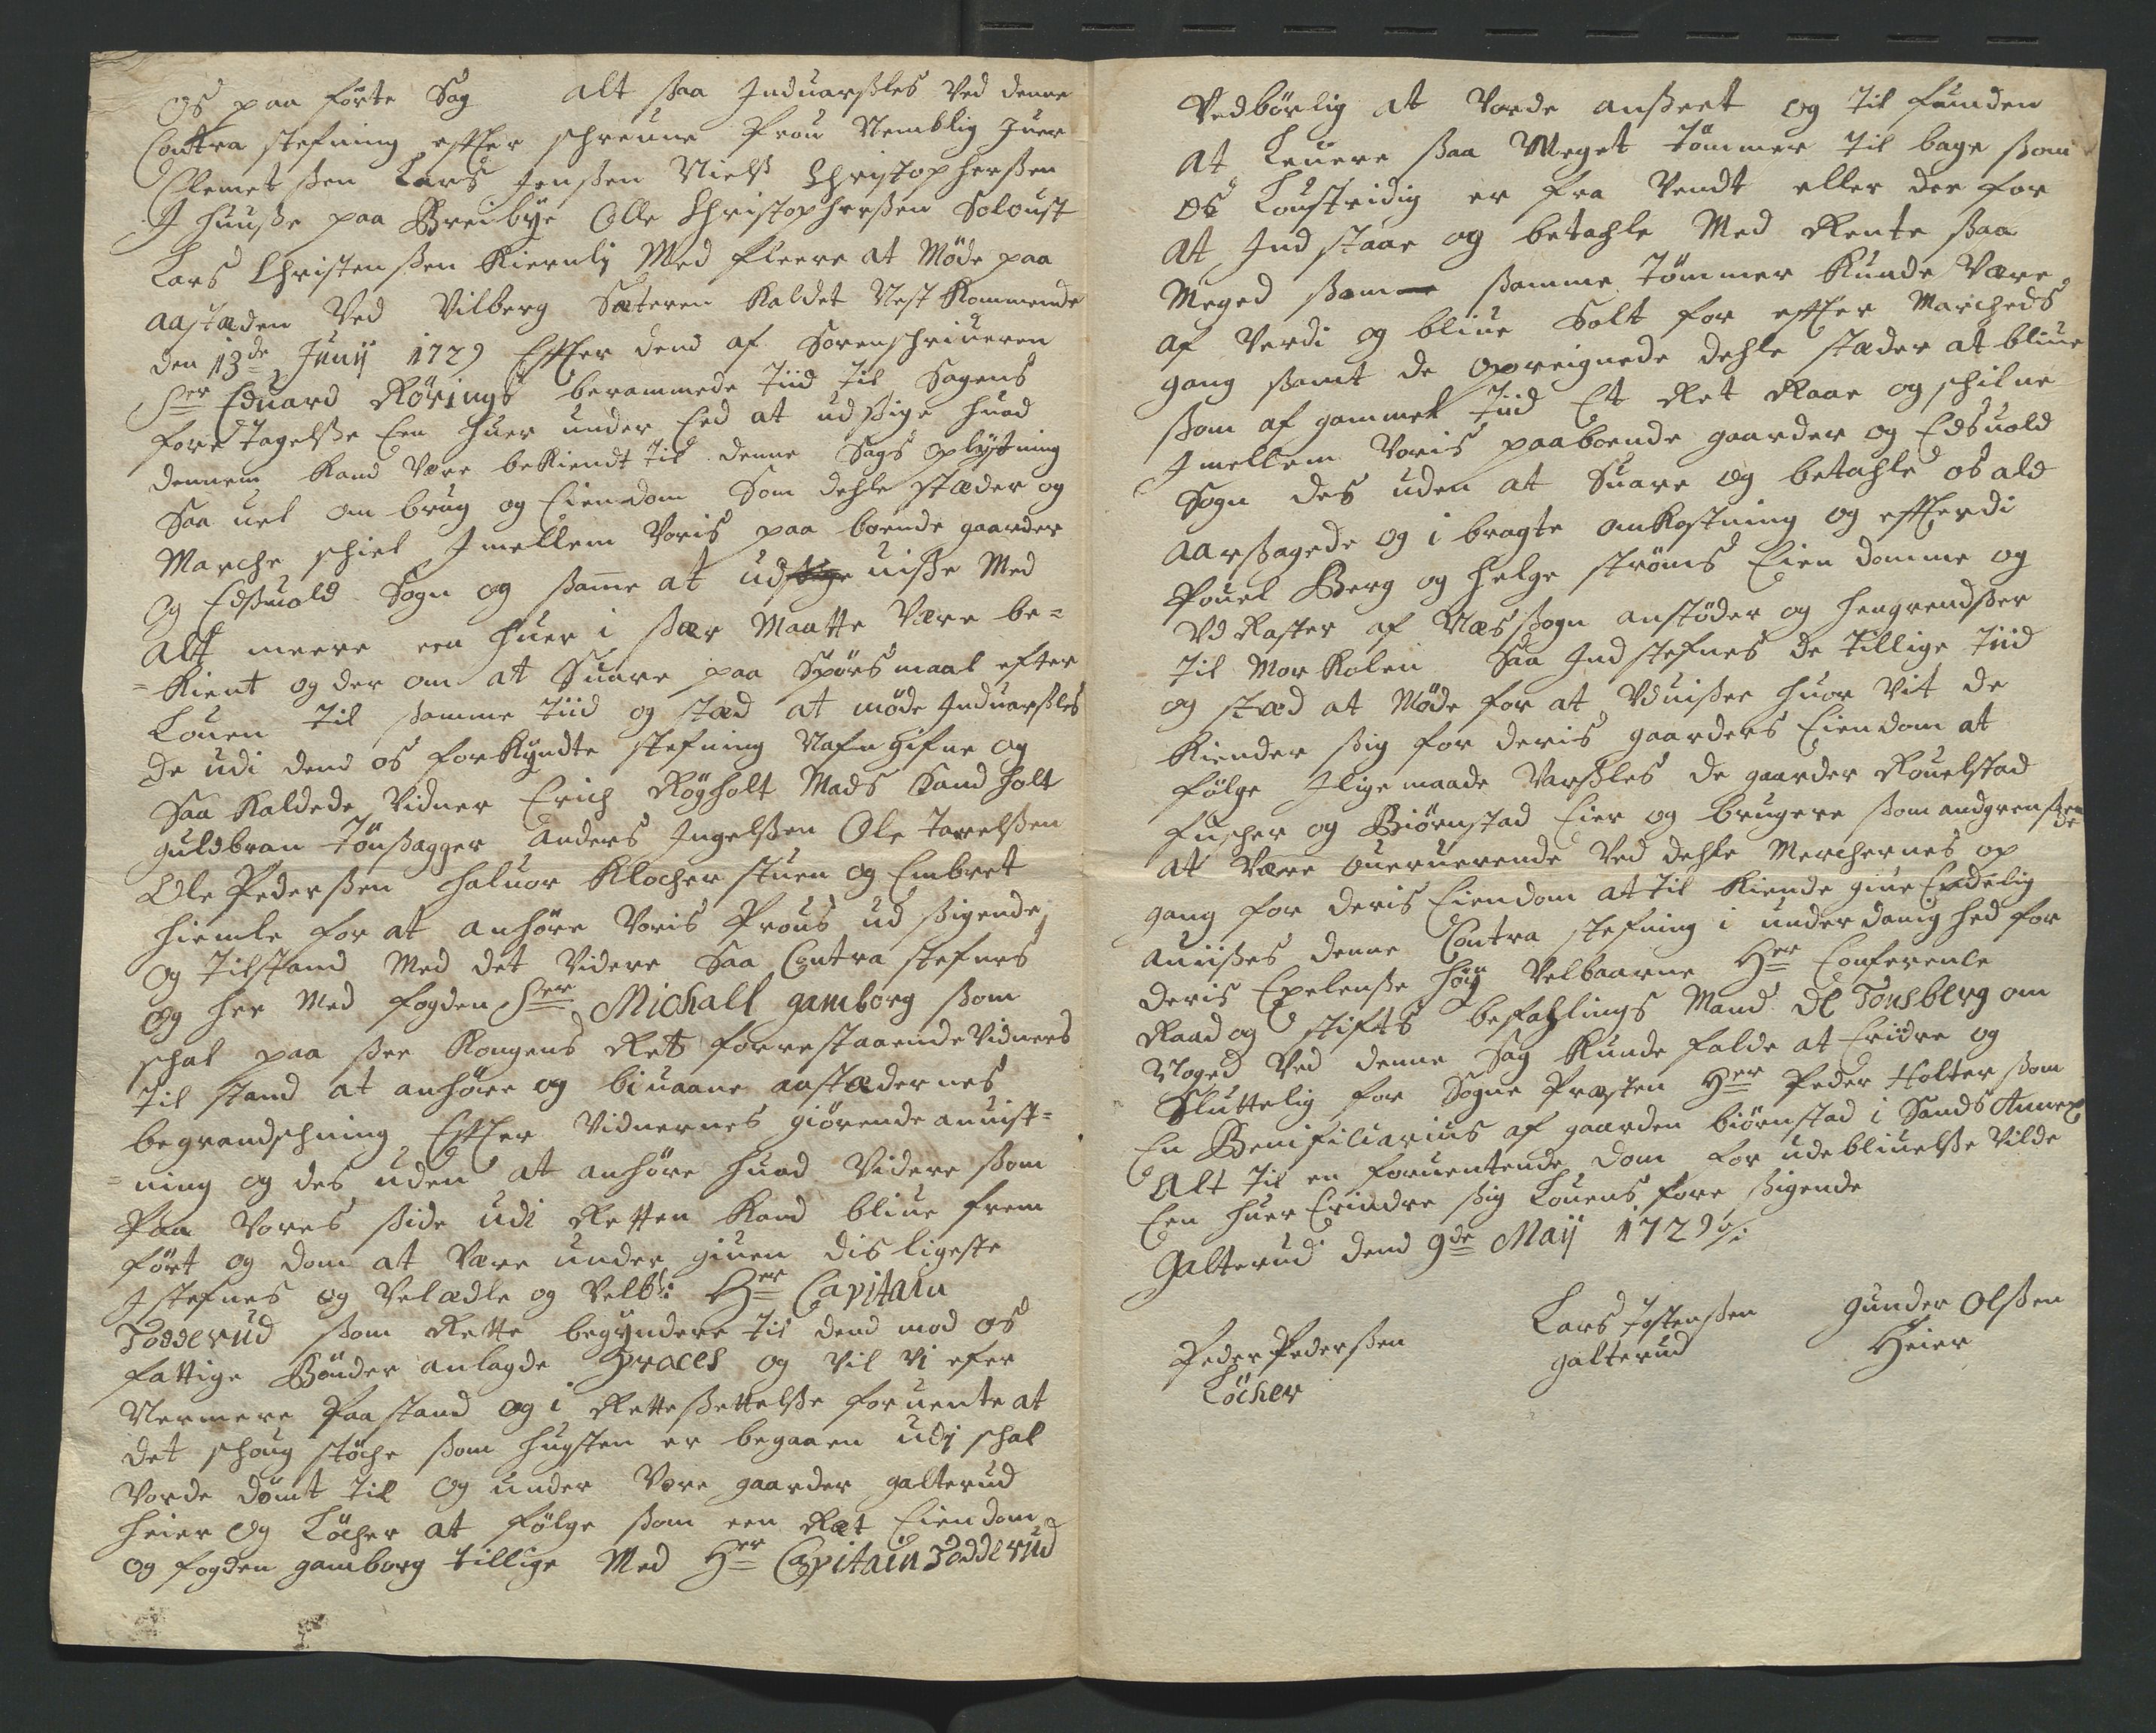 os paa förte Sag alt saa Induarsles Ved denne
Contra stefning effter schreune Prou Nemblig Iuer
Clemetsen Lars Jensen Niels Christophersen
I huuse paa Breibye Olle Christophersen Soloust
Lars Christensen Kiernli Med fleere at Möde paa
aastæden Ved Vilberg Sæteren kaldet Nest kommende
den 13de Junij 1729 Effter dend af Sorenschriueren
Sr Eduard Röring berammede Tiid Til Sagens
fore Tagelse Een huer under Eed at udsige huad
dennem kand Være bekiendt Til denne Sags oplysning
Saa uel om brug og Eiendom Som dehle stæder og
Marche schiel Imellem Voris paa boende gaarder
og Edsuold Sogn og same at ud uise Med
alt meere een huer i sær Maatte Være be=
=kient og der om at Suare paa Spörsmaal efter
Louen Til samme Tiid og stæd at möde Induarsles
de udi dend os forkyndte stefning Nafngifne og
Saa kaldede Vidner Erich Rögholt Mads Sandholt
guldbran Tönsagger anders Ingelsen Ole Tarelsen
Ole Pedersen haluor Klocher stuen og Embret
hiemle for at anhöre Voris Prous ud sigende
og Tilstand Med det Videre Saa Contra stefnes
og her Med fogden Sr Michall gamborg som
schal paa see Kongens Ret forrestaaende Vidners
Til stand at anhöre og biuaane aastædernes
begrandschning Effter Vidnernes giörende anuist=
=ning og des uden at anhöre huad Videre som
Paa Vores side udi Retten kand bliue frem
fört og dom at Være under giuen disligeste
Istefnes og Velædle og Velb: Hr Capitain
Todderud som Rette begyndere til dend mod os
fattige Bönder anlagde Proces og Vil Vi efter
Nermere Paastand og i Rettesettelse foruente at
det schoug stöche som hugsten er begaaen udi schal
Vorde dömt Til og under Vore gaarder galterud
heier og Löcher at fölge som een Ret Eiendom
og fogden gamborg tillige Med Hr Capitain Todderud
Vedbörlig at Vorde anseet og Til funden
at Leuere saa Meget Tömmer Til bage som
os Loustridig er fra Vendt eller der for
at Indstaae og betahle Med Rente saa
Meged som samme Tömmer kunde Være
af Verdi og bliue Solt for effter Marcheds
gang samt de opreignede dehle stæder at bliue
som af gammel Tiid Et Ret Raae og schilne
Imellem Voris paaboende gaarder og Edsuold
Sogn des uden at Suare og betahle os ald
aarsagede og i bragte omkostning og effterdi
Pouel Berg og helge ströms Eiendomme og
Vd Raster af Næs sogn anstöder og hengrendser
Til Morkolen Saa Indstefnes de Tillige Tiid
og stæd at Möde for at Vduisse huor Vit de
kiender sig for deris gaarders Eiendom at
fölge Iligemaade Varsles de gaarder Rouelstad
Fuscher og Biörnstad Eier og brugere som andgrensende
at Være ouerverende Ved dehle Merchernes op
gang for deris Eiendom at Til kiende giue Endelig
anuises denne Contra stefning i underdanighed for
deris Exelense höy Velbaarne Hr Conference
Raad og stifts befahlings Mand De Tonsberg om
Noged Ved denne Sag kunde falde at Eridre og
Sluttelig for Sogne Præsten Hr Peder Holter som
En Benificiarius af gaarden biörnstad i Sands Annex
Alt Til en foruentende dom for udebliuelse Vilde
Een huer Erindre sig Louens fore sigende
Galterud dend 9de Maij 1729
Peder Pedersen Lars Jostensen gunder Olsen
Löcher galterud Heier